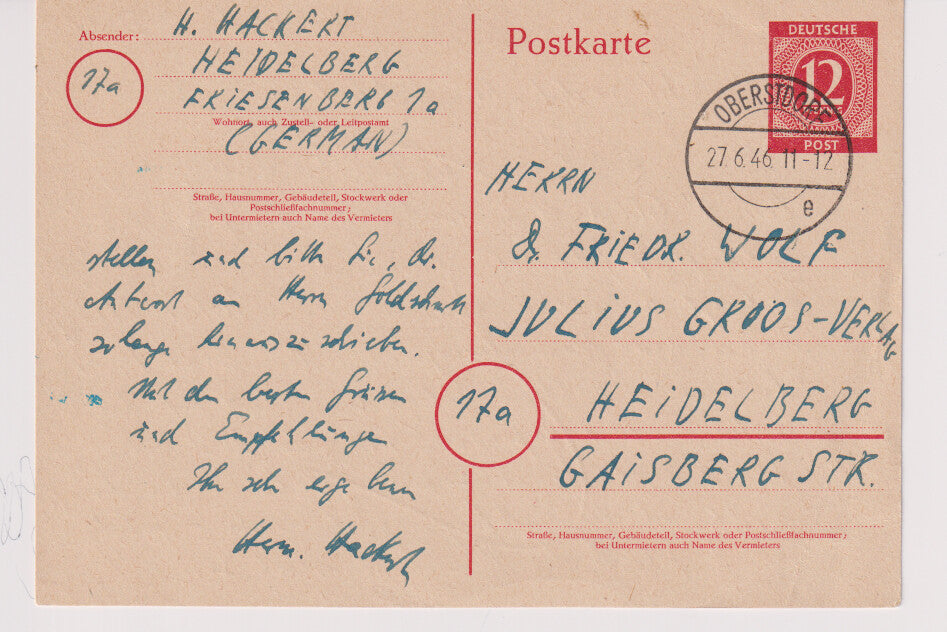 Absender: H. HACKERT
17a
HEIDELBERG
FRIESENBERG 1a
Wohnort, auch Zustell- oder Leitpostamt
(GERMAN)
Straße, Hausnummer, Gebäudeteil, Stockwerk oder
Postschließfachnummer;
bei Untermietern auch Name des Vermieters
stellen und bitte Sie, die
Antwort an Herrn Goldschmidt
solange hinauszuschieben.
Mit den besten Grüssen
und Empfehlungen
Ihr sehr ergebener
Herm. Hackert
Postkarte
DEUTSCHE
12
POST
OBERSTDORF
27.6.46.11-12
e
HERRN
Dr. FRIEDR. WOLF
JULIUS GROOS-VERLAG
17a
HEIDELBERG
GAISBERG STR.
Straße, Hausnummer, Gebäudeteil, Stockwerk oder Postschließfachnummer;
bei Untermietern auch Name des Vermieters